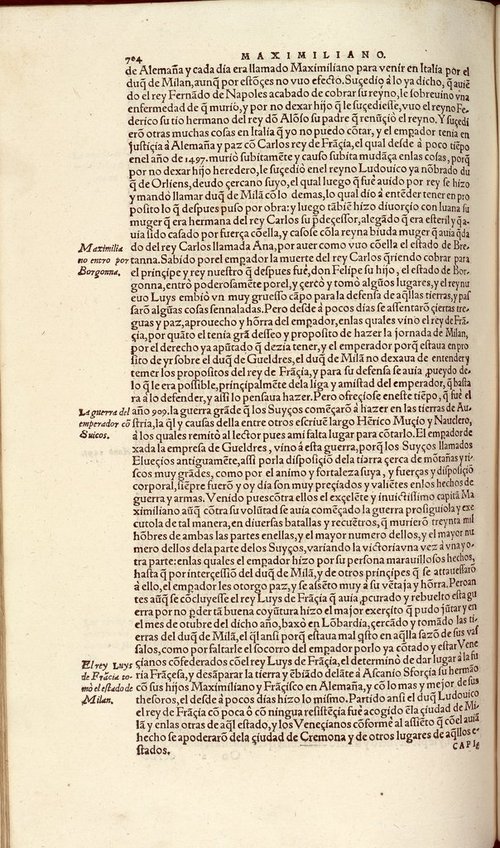 704
MAXIMILIANO.
de Alemaña y cada dia era llamado Maximiliano para venir en Italia por el
duq̃ de Milan, aunq̃ por estõces no vuo efecto. Suçedio à lo ya dicho, q̃ auiẽ
do el rey Fernãdo de Napoles acabado de cobrar su reyno, le sobreuino vna
enfermedad de q̃ murio, y por no dexar hijo q̃ le suçediesse, vuo el reyno Fe-
derico su tio hermano del rey dõ Alõso su padre q̃ renũçio el reyno. Y suçedi
erõ otras muchas cosas en Italia q̃ yo no puedo cõtar, y el empador tenia en
justiçia à Alemaña y paz cõ Carlos rey de Frãçia, el qual desde à poco tiẽpo
en el año de 1497. murio subitamẽte y causo subita mudãça enlas cosas, porq̃
por no dexar hijo heredero, le suçedio enel reyno Ludouico ya nõbrado du
q̃ de Orliens, deudo çercano suyo, el qual luego q̃ fuè auido por rey se hizo
y mandò llamar duq̃ de Milã cõ lo demas, lo qual dio à entẽder tener en pro
posito lo q̃ despues puso por obra: y luego tãbiẽ hizo diuorçio con Iuana su
muger q̃ era hermana del rey Carlos su pdeçessor, alegãdo q̃ era esteril y q̃ a-
uia sido casado por fuerça cõella, y casose cõla reyna biuda muger q̃ auia q̃da
do del rey Carlos llamada Ana, por auer como vuo cõella el estado de Bre-
tanna. Sabido porel empador la muerte del rey Carlos q̃riendo cobrar para
el prinçipe y rey nuestro q̃ despues fuè, don Felipe su hijo, el estado de Bor-
gonna, entrò poderosamẽte porel, y çercò y tomò algũos lugares, y el rey nu
euo Luys embiò vn muy gruesso cãpo para la defensa de aq̃llas tierras, y pas
sarõ algũas cosas sennaladas. Pero desde à pocos dias se assentarõ çiertas tre-
guas y paz, aprouecho y hõrra del empador, enlas quales vino el rey de Frã-
çia, por quãto el tenia grã desseo y proposito de hazer la jornada de Milan,
por el derecho ya apũtado q̃ dezia tener, y el emperador porq̃ estaua en pro
sito de yr sobre el duq̃ de Gueldres, el duq̃ de Milã no dexaua de entender y
temer los propositos del rey de Frãçia, y para su defensa se auia pueydo de
lo q̃ le era possible, prinçipalmẽte dela liga y amistad del emperador, q̃ basta
ra à lo defender, y assi lo pensaua hazer. Pero ofreçiose eneste tiẽpo, q̃ fuè el
año 909. la guerra grãde q̃ los Suyços começarõ à hazer en las tierras de Au-
stria, la q̃l y causas della entre otros escriuẽ largo Hẽrico Muçio y Nauclero,
à los quales remito al lector pues ami falta lugar para cõtarlo. El empador de
xada la empresa de Gueldres, vino à esta guerra, porq̃ los Suyços llamados
Elueçios antiguamẽte, assi por la disposiçiõ dela tierra çerca de mõtañas y ri-
scos muy grãdes, como por el animo y fortaleza suya, y fuerças y disposiçiõ
corporal, siẽpre fuerõ y oy dia son muy preçiados y valiẽtes enlos hechos de
guerra y armas. Venido pues cõtra ellos el exçelẽte y inuictissimo capitã Ma
ximiliano auq̃ cõtra su volũtad se auia começado la guerra prosiguiola y exe
cutola de tal manera, en diuersas batallas y recuẽtros, q̃ murierõ treynta mil
hõbres de ambas las partes enellas, y el mayor numero dellos, y el mayor nu
mero dellos dela parte delos Suyços, variando la victoria vna vez à vna y o-
tra parte: enlas quales el empador hizo por su persona marauillosos hechos,
hasta q̃ por interçessiõ del duq̃ de Milã, y de otros prinçipes q̃ se atrauessarõ
à ello, el empador les otorgo paz, y se assẽto muy à su vẽtaja y hõrra. Pero an
tes auq̃ se cõcluyesse el rey Luys de Frãçia q̃ auia pcurado y rebuelto esta gu
erra por no pder tã buena coyũtura hizo el mayor exerçito q̃ pudo jũtar y en
el mes de otubre del dicho año, baxò en Lõbardia, çercãdo y tomãdo las ti-
erras del duq̃ de Milã, el q̃l ansi porq̃ estaua mal q̃sto en aq̃lla sazõ de sus vas
salos, como por faltarle el socorro del empador porlo ya cõtado y estar Vene
çianos cõfederados cõel rey Luys de Frãçia, el determinò de dar lugar à la fu
ria Frãçesa, y desãparar la tierra y ẽbiãdo delãte à Ascanio Sforçia su hermano
cõ sus hijos Maximiliano y Frãçisco en Alemaña, y cõ lo mas y mejor de sus
thesoros, el desde à pocos dias hizo lo mismo. Partido ansi el duq̃ Ludouico
el rey de Frãçia cõ poca ò cõ ningua resistẽçia fuè acogido ẽla çiudad de Mi-
lã y enlas otras de aq̃l estado, y los Veneçianos cõforme al assiẽto q̃ cõel auiã
hecho se apoderarõ dela çiudad de Cremona y de otros lugares de aq̃llos e-
stados.
CAPI
Maximilia
no entro por
Borgonna.
La guerra del
emperador cõ
Suicos.
El rey Luys
de Frãcia to-
mò el estado de
Milan.